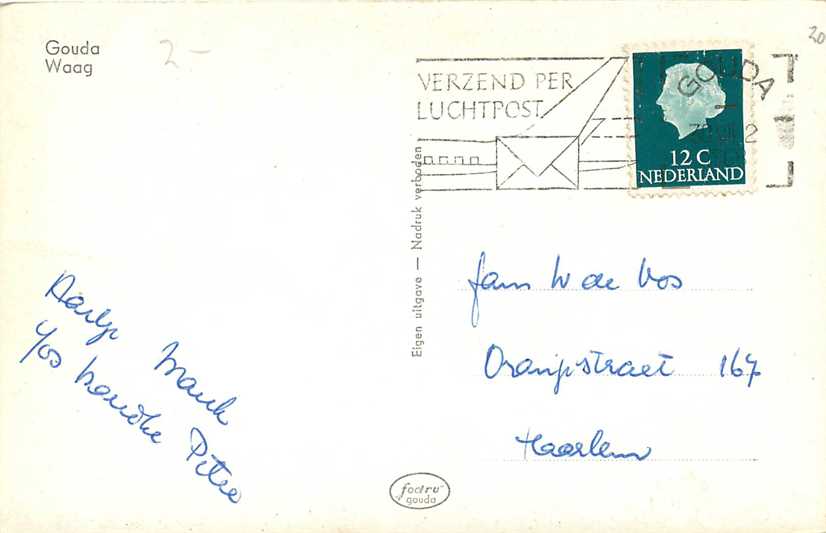 Gouda
Waag
2-
20
VERZEND PER
LUCHTPOST
GOUDA
12 C
NEDERLAND
Eigen uitgave — Nadruk verboden
Fam W de Vos
Oranjestraat 167
Haarlem
Yos Pitee
foctru
gouda